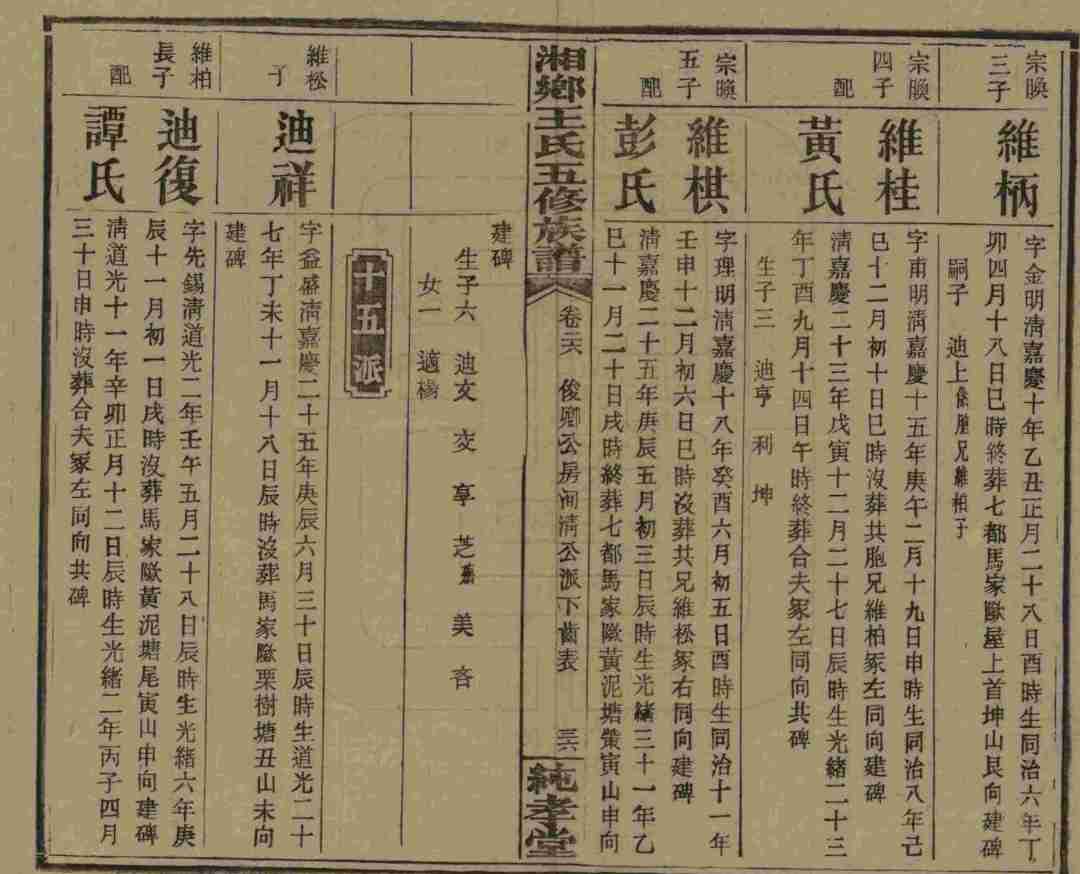 宗喚三子
維柄
字金明清嘉慶十年乙丑正月二十八日酉時生同治六年丁
卯四月十八日巳時終葬七都馬家陂屋上首坤山艮向建碑
嗣子 迪上係胞兄維柏子
宗喚四子
維桂
字甫明清嘉慶十五年庚午二月十九日申時生同治八年己
巳十二月初十日巳時沒葬共胞兄維柏冢左同向建碑
配
黃氏
清嘉慶二十三年戊寅十二月二十七日辰時生光緒二十三
年丁酉九月十四日午時終葬合夫冢左同向共碑
生子三 迪亨 利 坤
宗喚五子
維棋
字理明清嘉慶十八年癸酉六月初五日酉時生同治十一年
壬申十二月初六日巳時沒葬共兄維松冢右同向建碑
配
彭氏
清嘉慶二十五年庚辰五月初三日辰時生光緒三十一年乙
巳十一月二十日戌時終葬七都馬家陂黃泥塘寅山申向
湘鄉王氏五修族譜
卷六 俊卿公房淸公派下齒表
三六
純孝堂
建碑
生子六 迪文 交 享 芝 美 吝
女一 適楊
十五派
維松子
迪祥
字益盛清嘉慶二十五年庚辰六月三十日辰時生道光二十
七年丁未十一月十八日辰時沒葬馬家陂栗樹塘丑山未向
建碑
維柏長子
迪復
字先錫清道光二年壬午五月二十八日辰時生光緒六年庚
辰十一月初一日戌時沒葬馬家陂黃泥塘尾寅山申向建碑
配
譚氏
清道光十一年辛卯正月十二日辰時生光緒二年丙子四月
三十日申時沒葬合夫冢左同向共碑